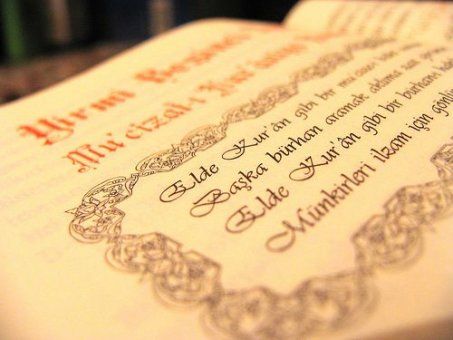 Yirmi Beşinci
Mu'cizat-ı Kur'âni
Elde Kur'ân gibi bir
Başka bürhan aramak aklıma
Elde Kur'ân gibi bir bürhan-ı
Münkirleri ilzam için